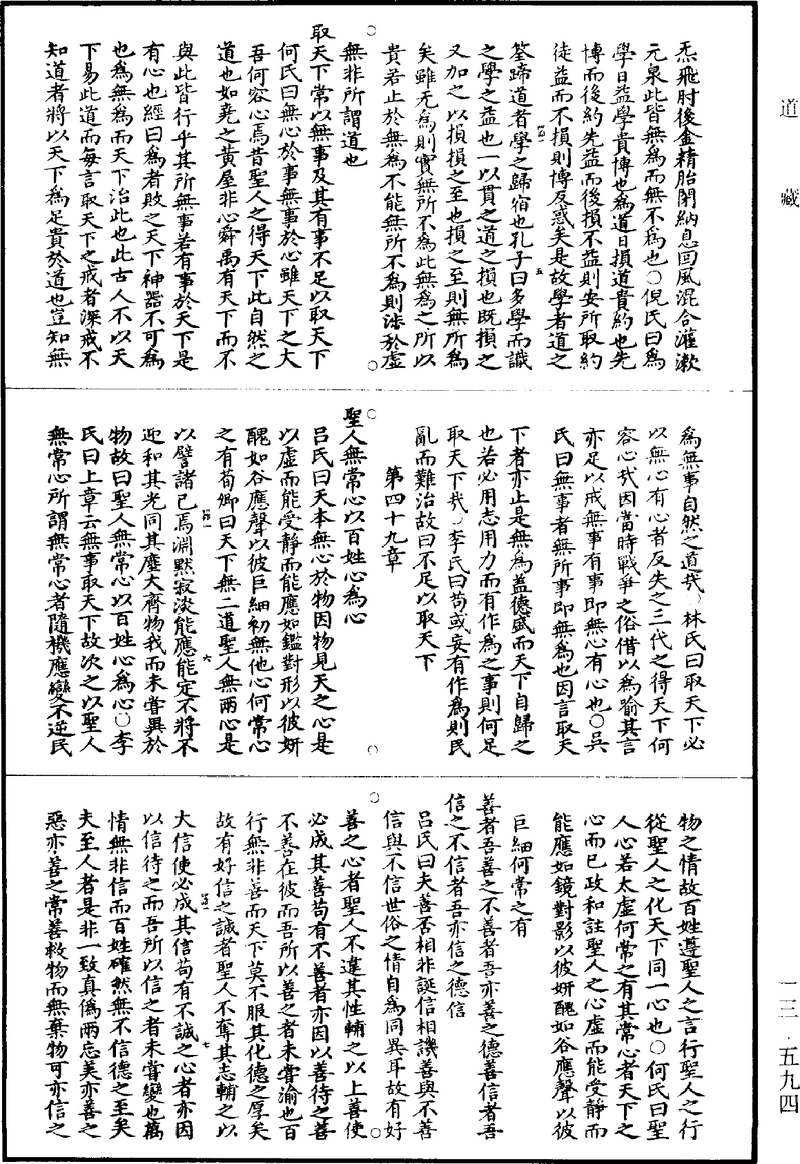 道藏
炁飛肘後金精胎閉納息回風混合灌漱
元泉此皆無為而無不為也○倪氏曰為
學日益學貴博也為道日損道貴約也先
博而後約先益而後損不益則安所取約
徒益而不損則博反惑矣是故學者道之
筌蹄道者學之歸宿也孔子曰多學而識
之學之益也一以貫之道之損也既損之
又加之以損損之至也損之至則無所為
矣雖无為則實無所不為此無為之所以
貴若止於無為不能無所不為則淡於虛
無非所謂道也
取天下常以無事及其有事不足以取天下
何氏曰無心於事無事於心雖天下之大
吾何容心焉昔聖人之得天下此自然之
道也如堯之黃屋非心舜禹有天下而不
與此皆行乎其所無事若有事於天下是
有心也經曰為者敗之天下神器不可為
也為無為而天下治此也此古人不以天
下易此道而每言取天下之戒者深戒不
知道者將以天下為足貴於道也豈知無
為無事自然之道哉○林氏曰取天下必
以無心有心者反失之三代之得天下何
容心哉因當時戰爭之俗借以為喻其言
亦足以戒無事有事即無心有心也○吳
氏曰無事者無所事即無為也因言取天
下者亦止是無為蓋德盛而天下自歸之
也若必用志用力而有作為之事則何足
取天下哉○李氏曰苟或妄有作為則民
亂而難治故曰不足以取天下
第四十九章
聖人無常心以百姓心為心
呂氏曰天本無心於物因物見天之心是
以虛而能受靜而能應如鑑對形以彼妍
醜如谷應聲以彼巨細初無他心何常心
之有荀卿曰天下無二道聖人無兩心是
以譬諸已焉淵默寂淡能應能定不將不
迎和其光同其塵大齊物我而未嘗異於
物故曰聖人無常心以百姓心為心○李
氏曰上章云無事取天下故次之以聖人
無常心所謂無常心者隨機應變不逆民
物之情故百姓遵聖人之言行聖人之行
從聖人之化天下同一心也○何氏曰聖
人心若太虛何常之有其常心者天下之
心而已政和註聖人之心虛而能受靜而
能應如鏡對影以彼妍醜如谷應聲以彼
巨細何常之有
善者吾善之不善者吾亦善之德善信者吾
信之不信者吾亦信之德信
呂氏曰夫善否相非誕信相譏善與不善
信與不信世俗之情自為同異耳故有好
善之心者聖人不違其性輔之以上善使
必成其善苟有不善者亦因以善待之善
不善在彼而吾所以善之者未嘗渝也百
行無非善而天下莫不服其化德之厚矣
故有好信之誠者聖人不奪其志輔之以
大信使必成其信苟有不誠之心者亦因
以信待之而吾所以信之者未嘗變也萬
情無非信而百姓確然無不信德之至矣
夫至人者是非一致真偽兩忘美亦善之
惡亦善之常善救物而無棄物可亦信之
一三·五九四